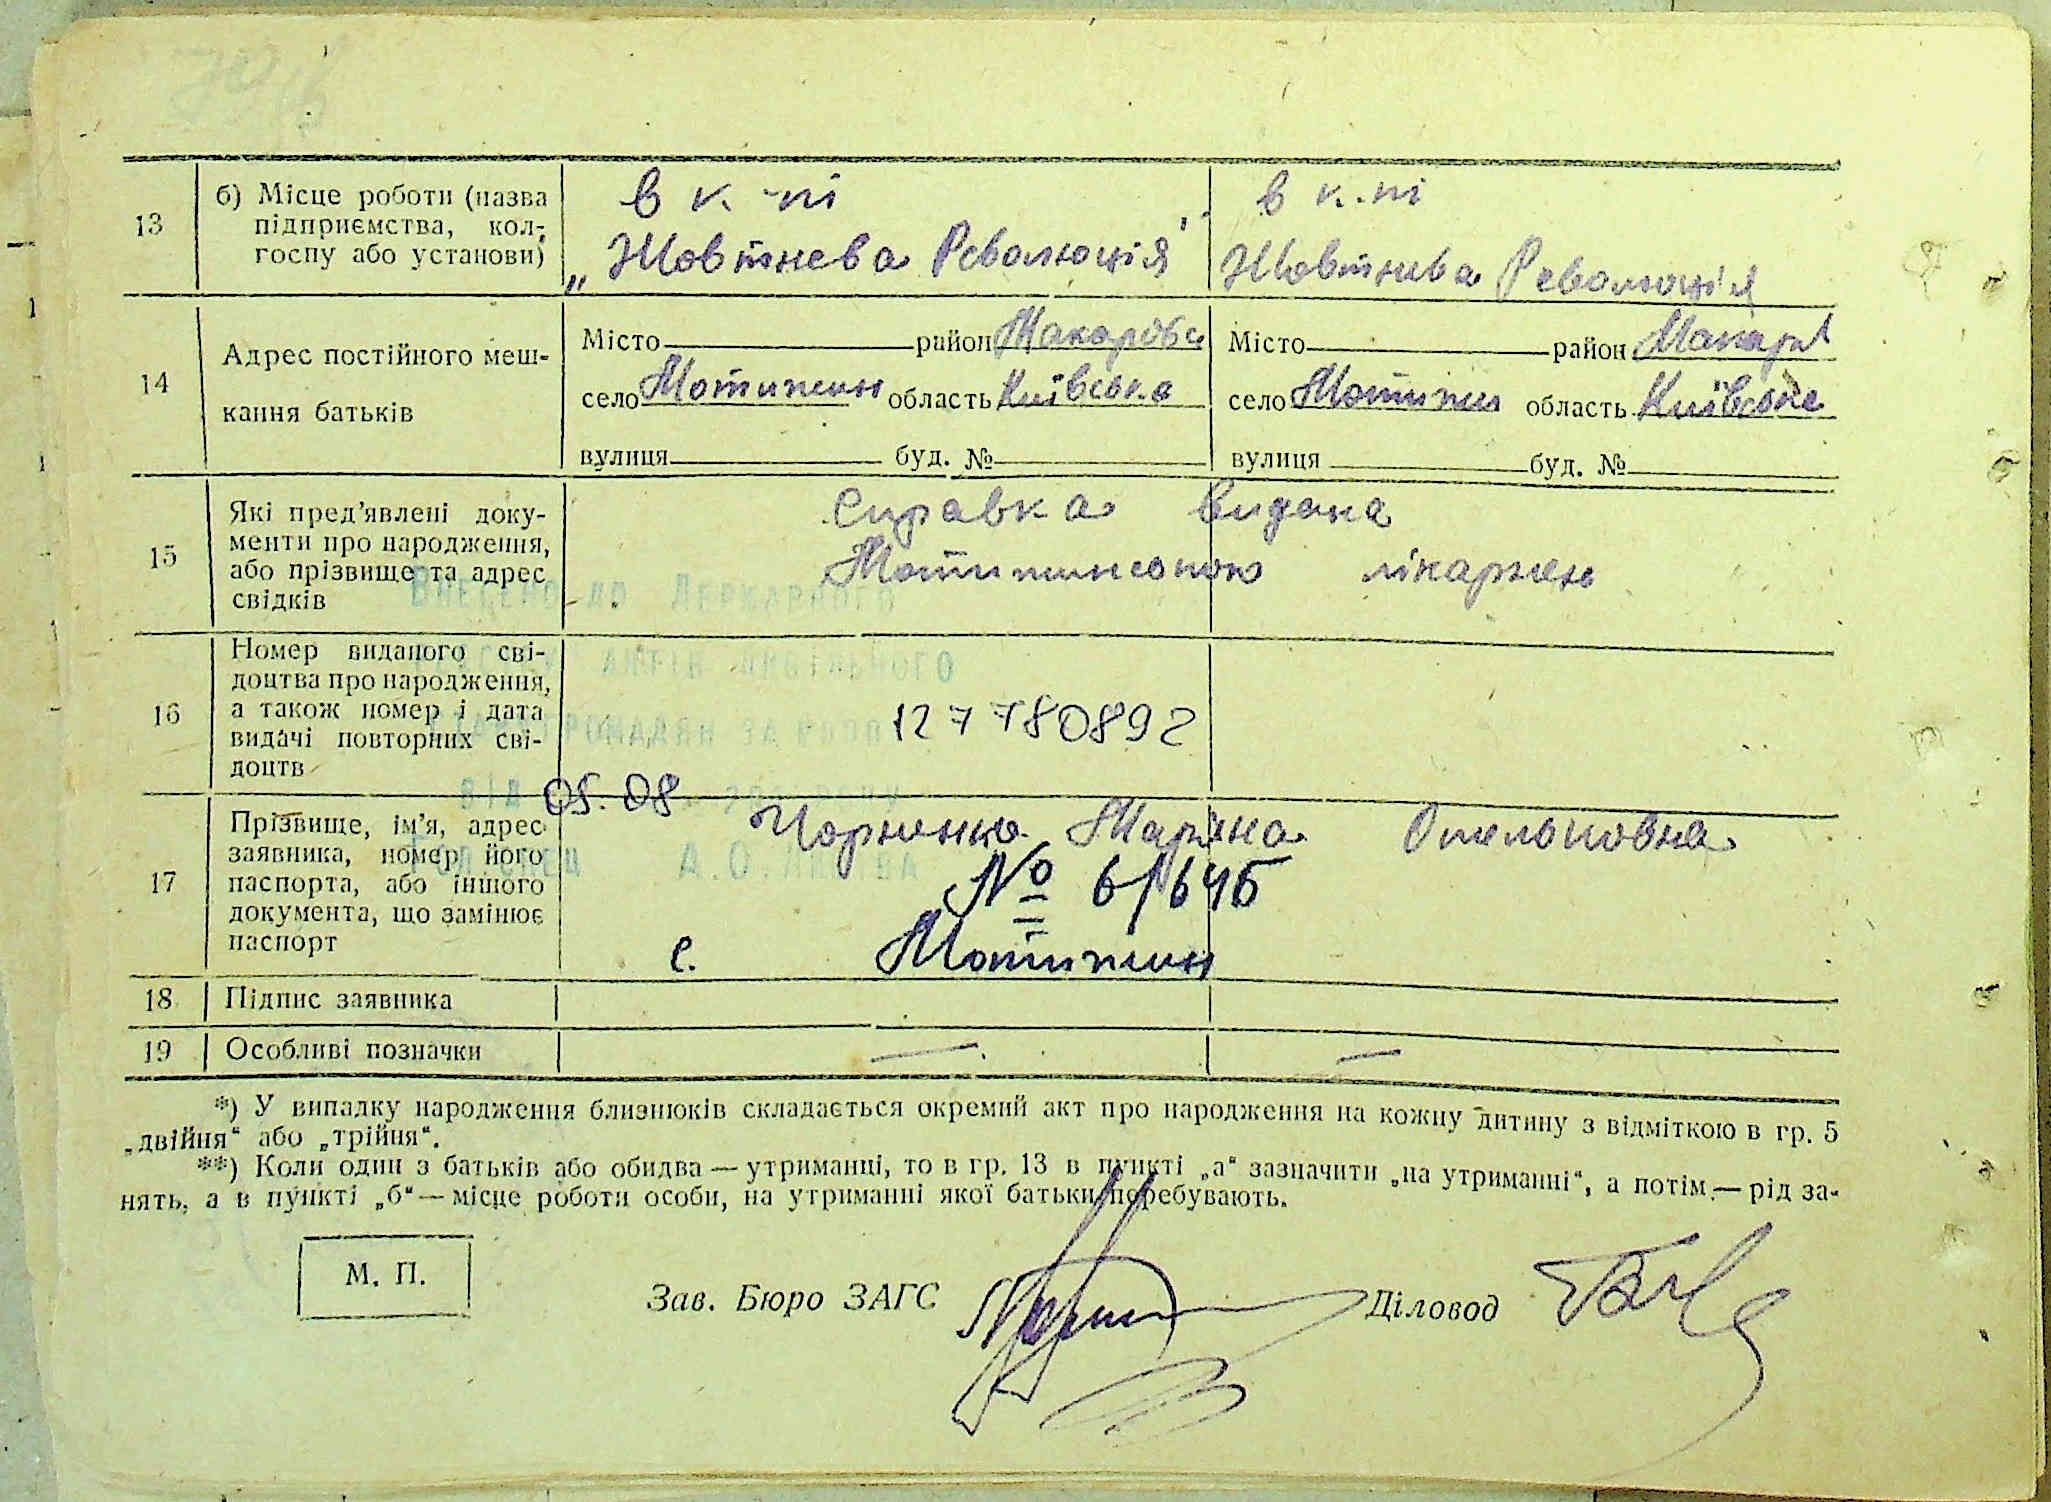 13
б) Місце роботи (назва
підприємства, кол-
госпу або установи)
в к-пі
„Жовтнева Революція"
в к.пі
Жовтнева Революція
14
Адрес постійного меш-
кання батьків
Місто район Макарівс
село Мотижин область Київська
вулиця буд. №
Місто район Макарів
село Мотижин область Київське
вулиця буд. №
15
Які пред’явлені доку-
менти про народження,
або прізвище та адрес
свідків
Справка видана
Мотижинською лікарнею
Внесено до Державного
актів цивільного
громадян за
від
А.О.
16
Номер виданого сві-
доцтва про народження,
а також номер і дата
видачі повторних сві-
доцтв
1277780892
05.08.
17
Прізвище, ім’я, адрес
заявника, номер його
паспорта, або іншого
документа, що замінює
паспорт
Чорненко Марʼяна Омельковна
№ 6/645
с. Мотижин
18
Підпис заявника
19
Особливі позначки
— —
*) У випадку народження близнюків складається окремий акт про народження на кожну дитину з відміткою в гр. 5
„двійня“ або „трійня“.
**) Коли один з батьків або обидва — утриманні, то в гр. 13 в пункті „а“ зазначити „на утриманні“, а потім — рід за-
нять, а в пункті „б“ — місце роботи особи, на утриманні якої батьки перебувають.
М. П.
Зав. Бюро ЗАГС
Діловод